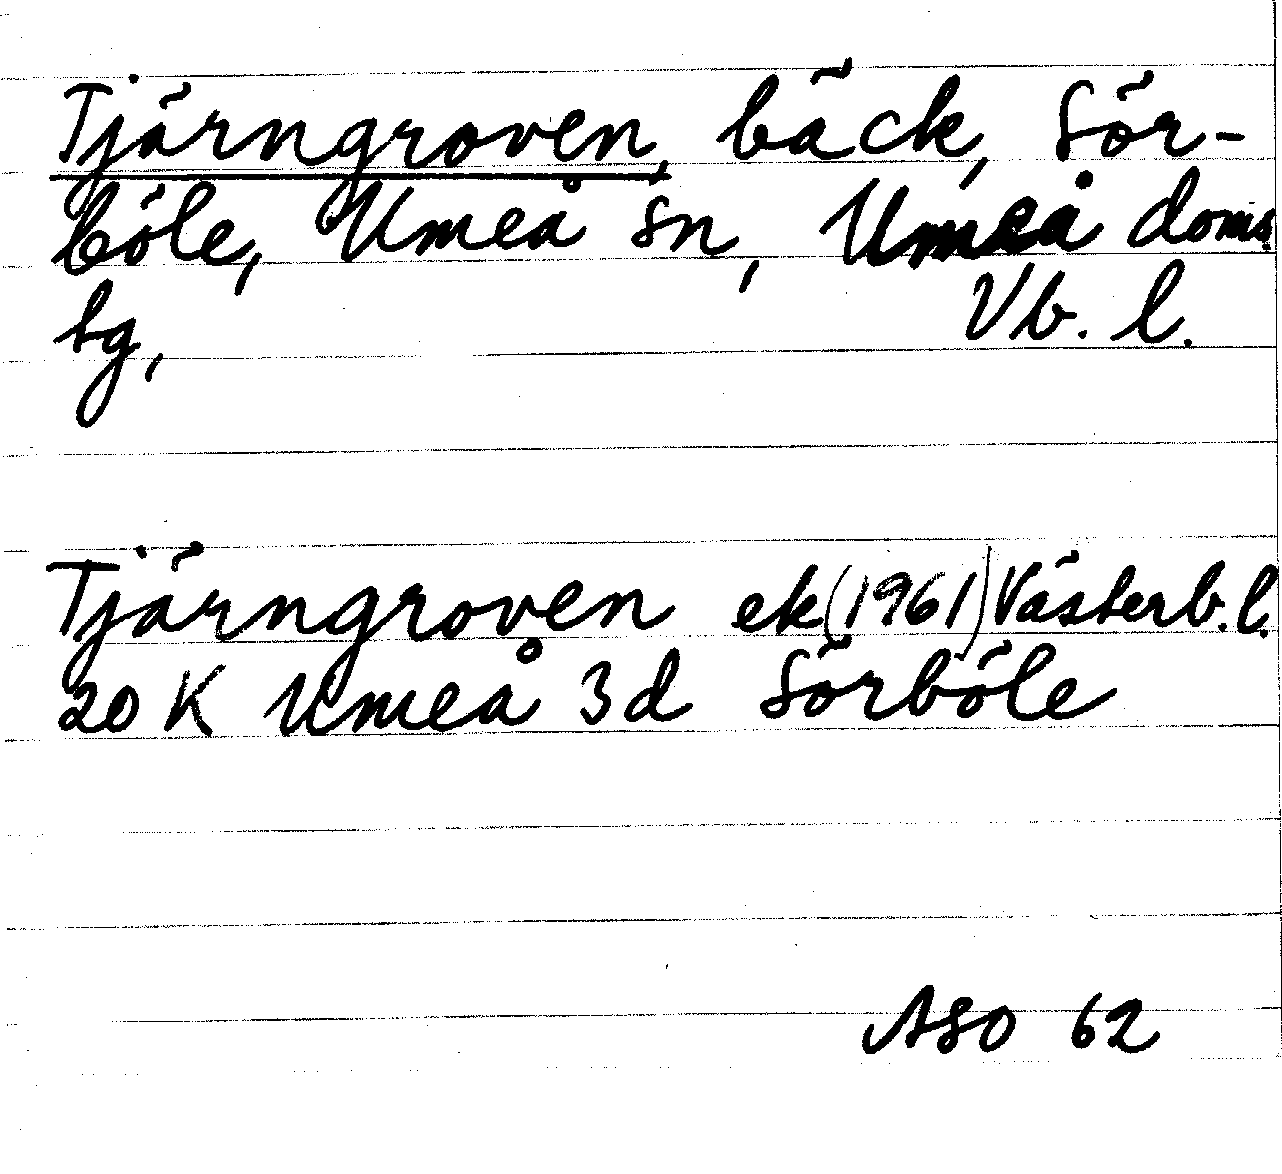 Tjärngroven, bäck, Sör-
böle, Umeå sn, Umeå doms
sg, Vb. l.
Tjärngroven ek (1961) Västerb. l.
20 K Umeå 3d Sörböle
ASO 62